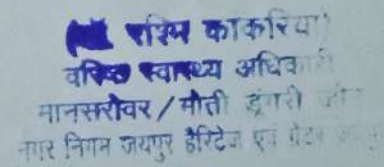 रश्मि कांकरिया)
वरिष्ठ स्वास्थ्य अधिकारी
मानसरोवर / मोती डूंगरी जोन
नगर निगम जयपुर हैरिटेज एवं ग्रेटर जयपुर